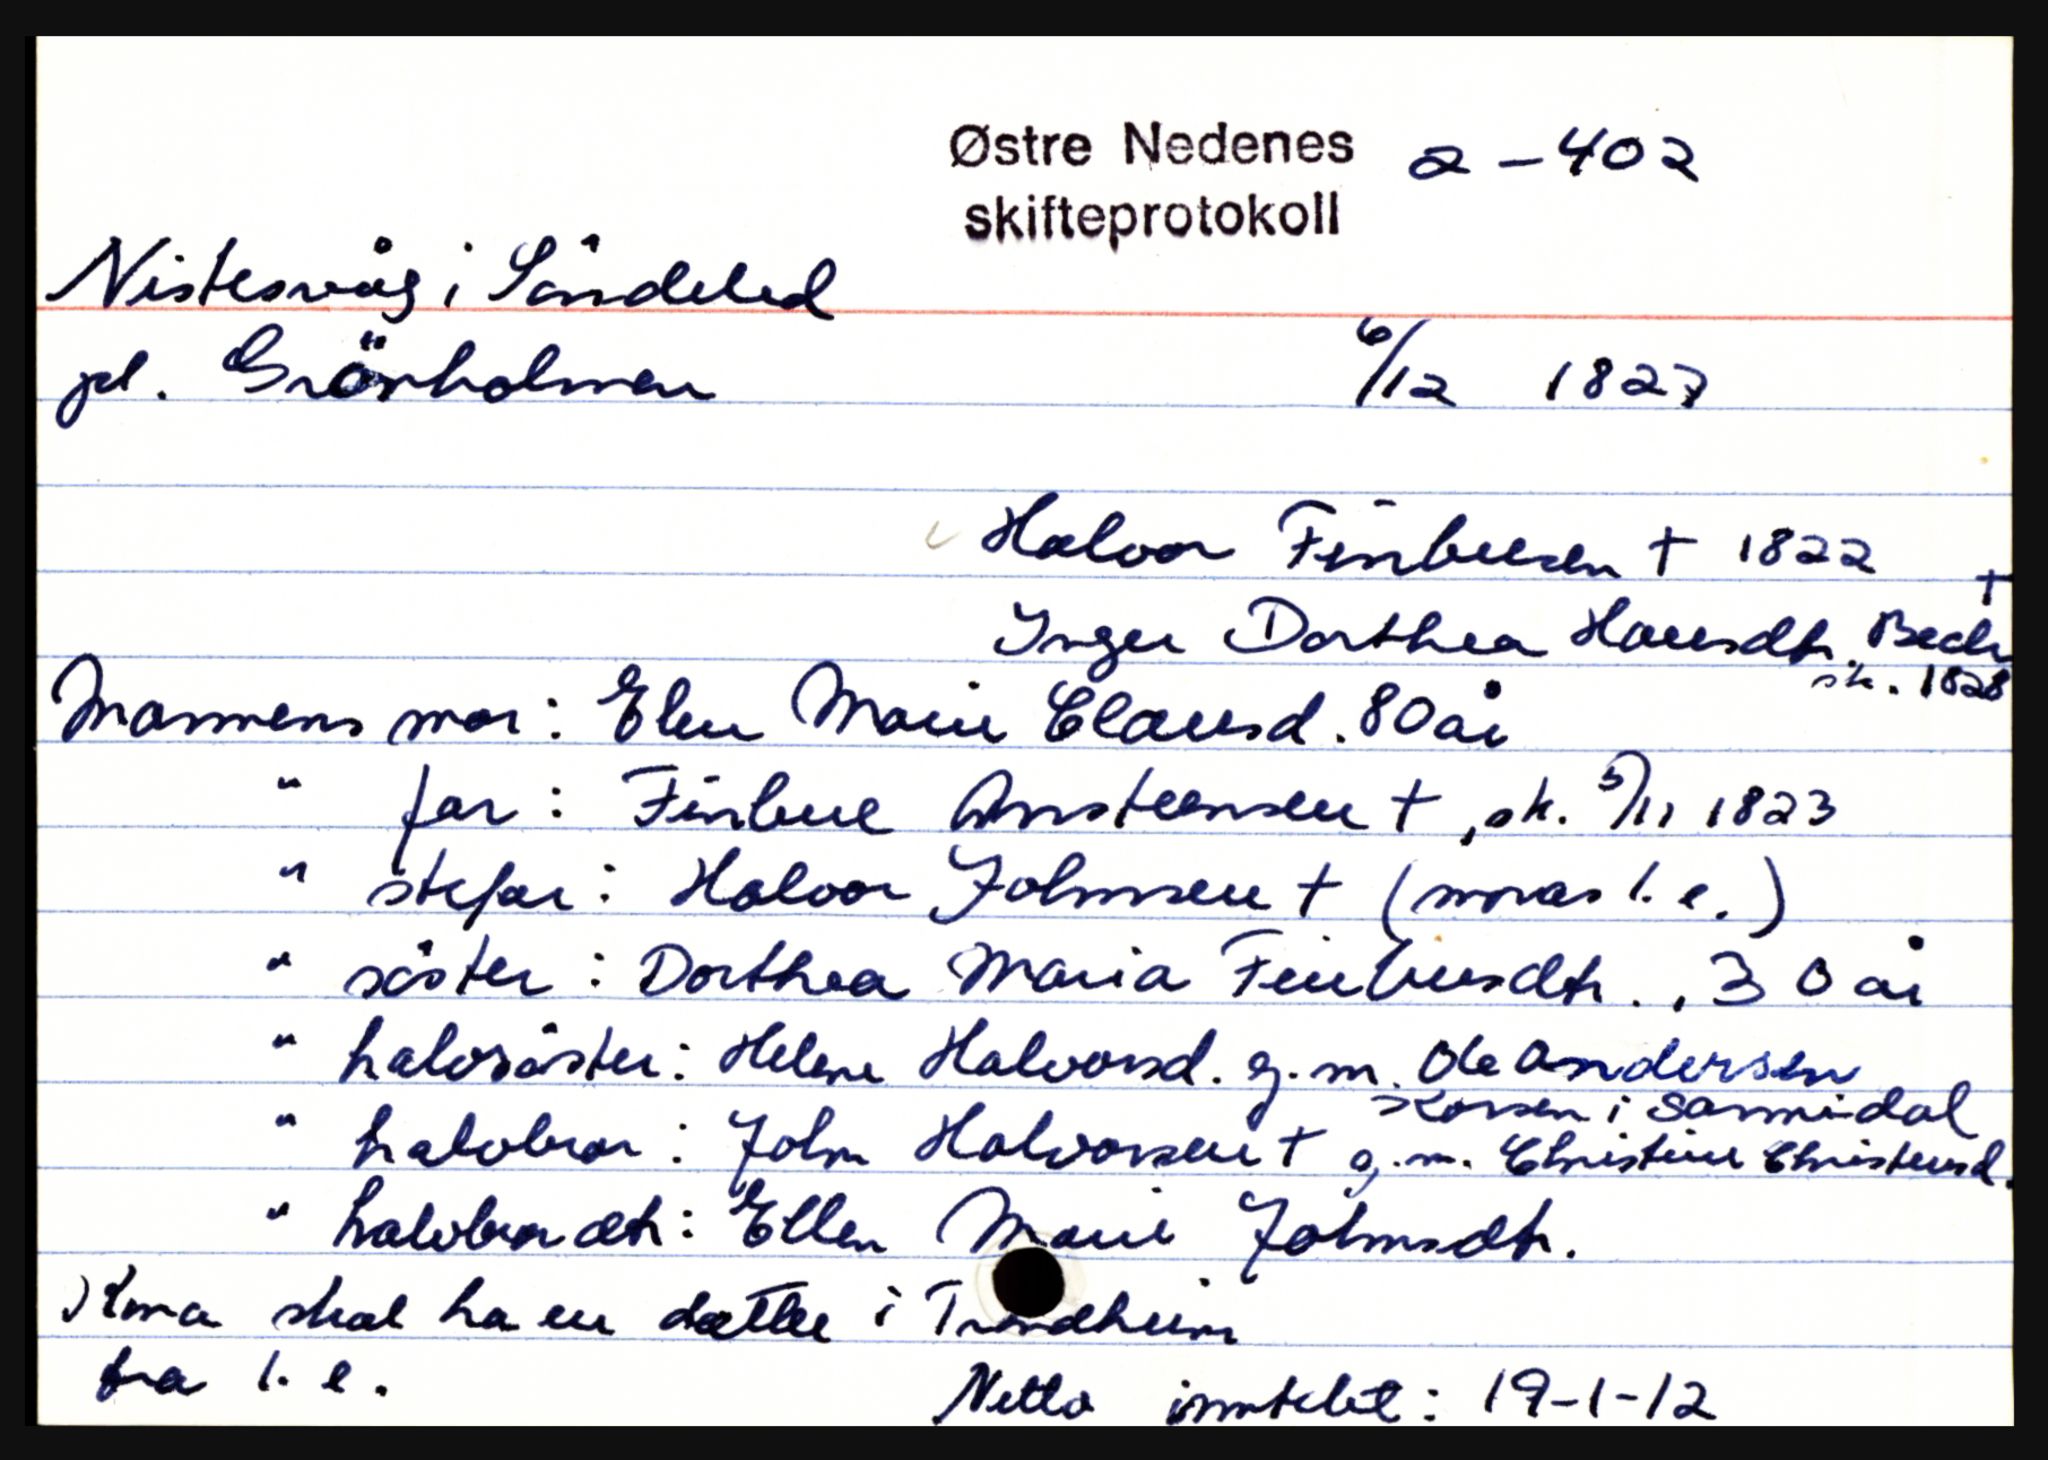 Østre Nedenes 2-402
skifteprotokoll
Nistesvåg i Söndeled
pl. Grönholmen 6/12 1827
Halvor Finbuesen † 1822
Inger Dorthea Hansdtr. Bech †
sk. 1828
Mannens mor: Elen Marie Clausd. 80 år
" far: Finbue Ansteensen †, sk. 5/11 1823
" stefar: Halvor Johnsen † (moras 1. e.)
" söster: Dorthea Maria Finbuesdtr., 30 år
" halvsöster: Helene Halvorsd. g.m. Ole Andersen
i Sannidal
" halvbror: John Halvorsen † g.m. Christine Christensd.
" halvbrordtr: Ellen Marie Johnsdtr.
Kona skal ha en datter i Trondheim
fra 1. e. Netto inntekt: 19-1-12